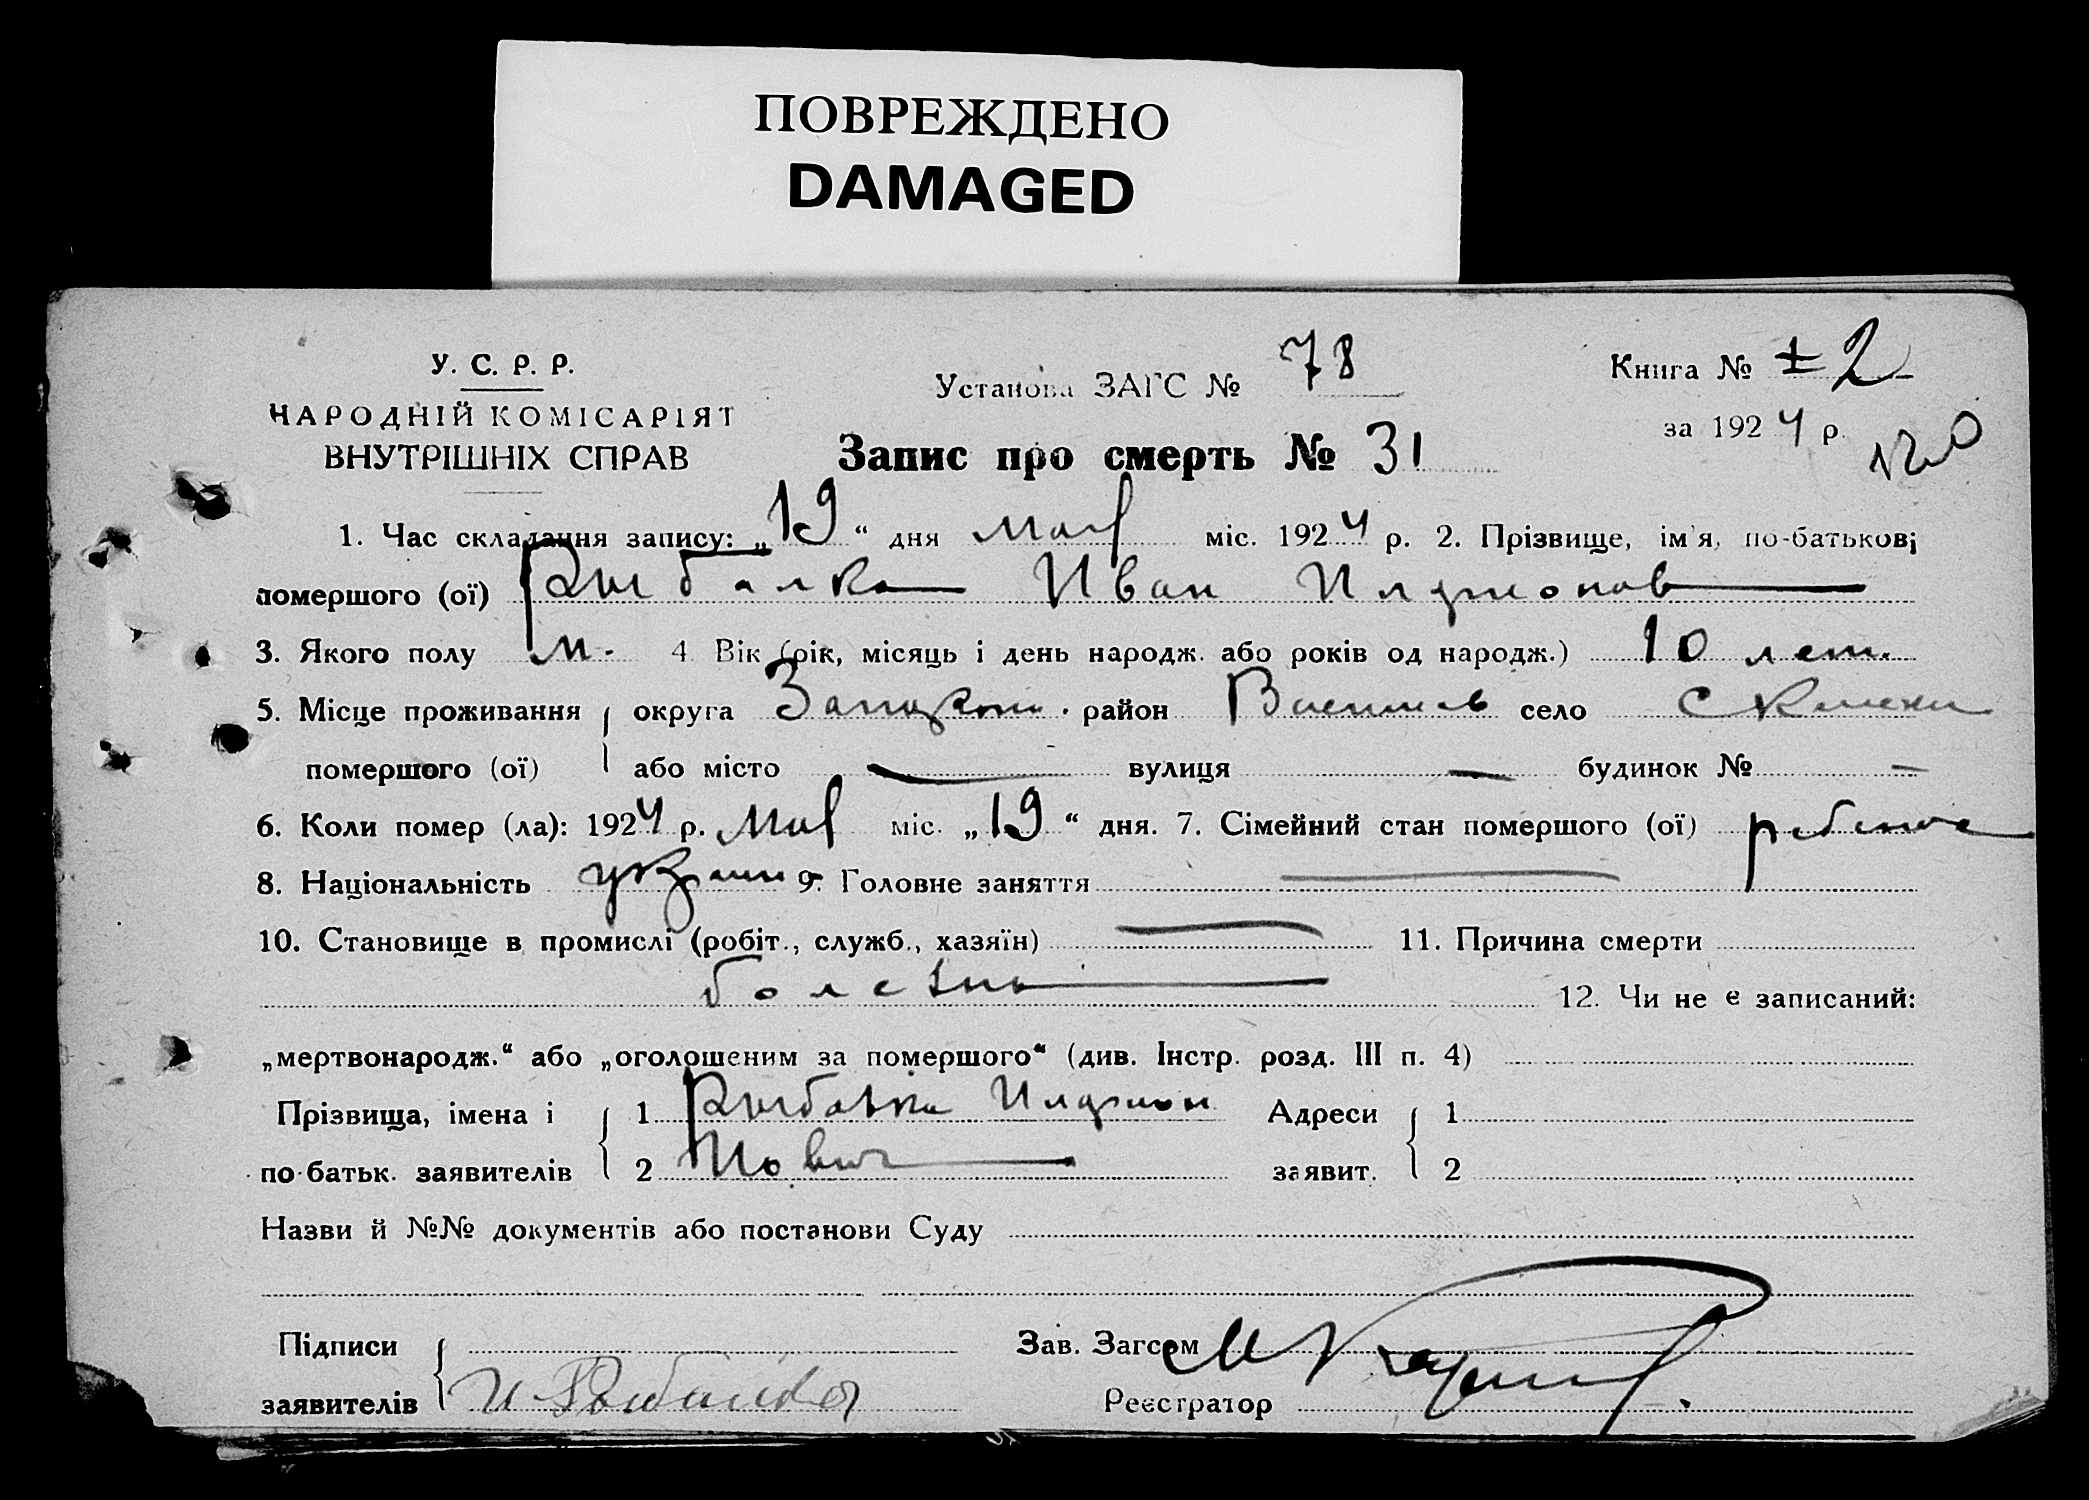 ПОВРЕЖДЕНО
DAMAGED
У. С. Р. Р.
НАРОДНІЙ КОМІСАРІЯТ
ВНУТРІШНІХ СПРАВ
Установа ЗАГС № 78
Книга № 2
за 1924 р.
Запис про смерть № 31
1. Час складання запису: „19“ дня міс. 1924 р. 2. Прізвище, ім'я, по-батькові
помершого (ої) Рыбалка Иван
3. Якого полу м. 4 Вік (рік, місяць і день народж. або років од народж.) 10 лет.
5. Місце проживання округа район село
помершого (ої) або місто — вулиця — будинок № —
6. Коли помер (ла): 1924 р. міс. „19“ дня. 7. Сімейний стан помершого (ої)
8. Національність 9. Головне заняття —
10. Становище в промислі (робіт., служб., хазяїн) — 11. Причина смерти
болезнь 12. Чи не є записаний:
„мертвонародж.“ або „оголошеним за помершого“ (див. Інстр. розд. III п. 4)
Прізвища, імена і 1 Рыбалка Адреси 1
по-батьк. заявителів 2 заявит. 2
Назви й №№ документів або постанови Суду
Підписи Зав. Загсом
заявителів И Рыбалка Реєстратор